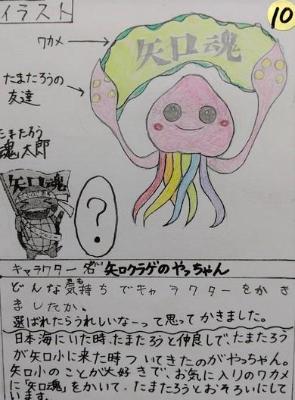 イラスト
10
ワカメ
矢口魂
たまたろうの
友達
たまたろう
魂太郎
矢口魂
?
キャラクター名 矢口クラゲのやっちゃん
どんな気持ちでキャラクターをかき
ましたか。
選ばれたらうれしいなーって思ってかきました。
日本海にいた時、たまたろうと仲良しで、たまたろう
が矢口小に来た時ついてきたのがやっちゃん。
矢口小のことが大好きで、お気に入りのワカメ
に「矢口魂」をかいて、たまたろうとおそろいにして
います。